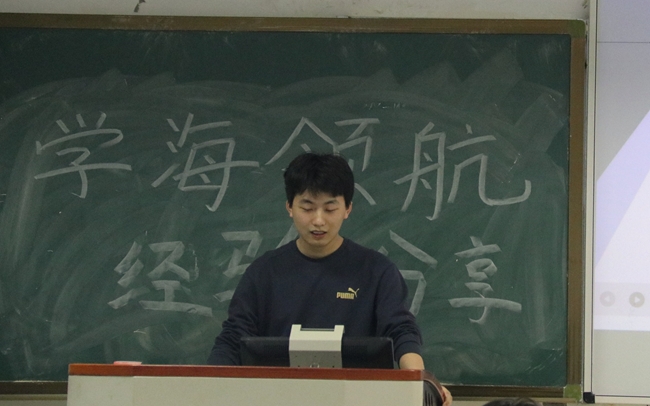 学海领航
经验分享
PUMA